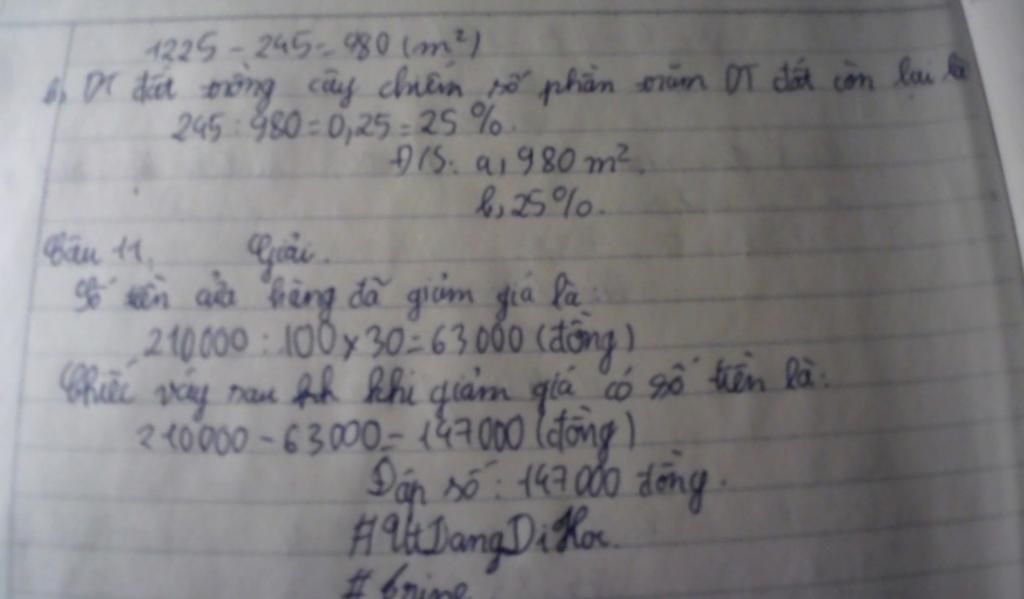 1225 - 245 = 980 (m²)
b, DT đất trồng cây chiếm số phần trăm DT đất còn lại là
245 : 980 = 0,25 = 25%.
Đ/S: a, 980 m².
b, 25%.
Câu 11. Giải.
Số tiền cửa hàng đã giảm giá là:
210000 : 100 x 30 = 63000 (đồng)
Chiếc váy sau khi giảm giá có số tiền là:
210000 - 63000 = 147000 (đồng)
Đáp số: 147000 đồng.
#UtDangDiHoc.